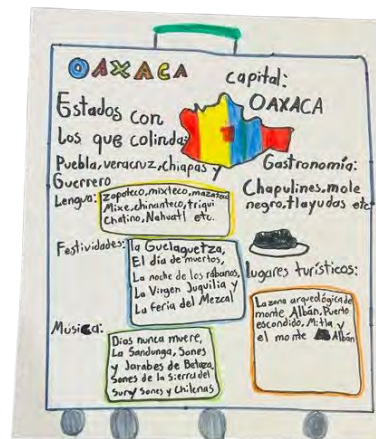 OAXACA
capital:
OAXACA
Estados con
los que colinda:
Puebla, veracruz, chiapas y
Guerrero
Gastronomía:
Chapulines, mole
negro, tlayudas etc
Lengua:
zapoteco, mixteco, mazateco
Mixe, chinanteco, triqui
Chatino, Nahuatl etc.
Festividades:
la Guelaguetza,
El día de muertos,
La noche de los rábanos,
La Virgen Juquilia y
La feria del Mezcal
lugares turísticos:
La zona arqueológica de
monte Albán, Puerto
escondido, Mitla y
el monte Albán
Música:
Dios nunca muere,
La Sandunga, Sones
y Jarabes de Betaza,
Sones de la Sierra del
Sur y Sones y Chilenas